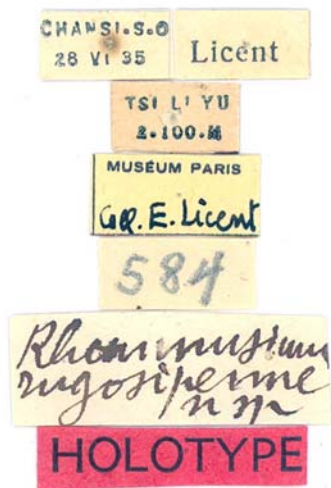 CHANSI.S.O
28 VI 35
Licent
TSI LI YU
2.100.M
MUSÉUM PARIS
Coll. E. Licent
584
Rhamnusium
rugosipenne
n sp
HOLOTYPE